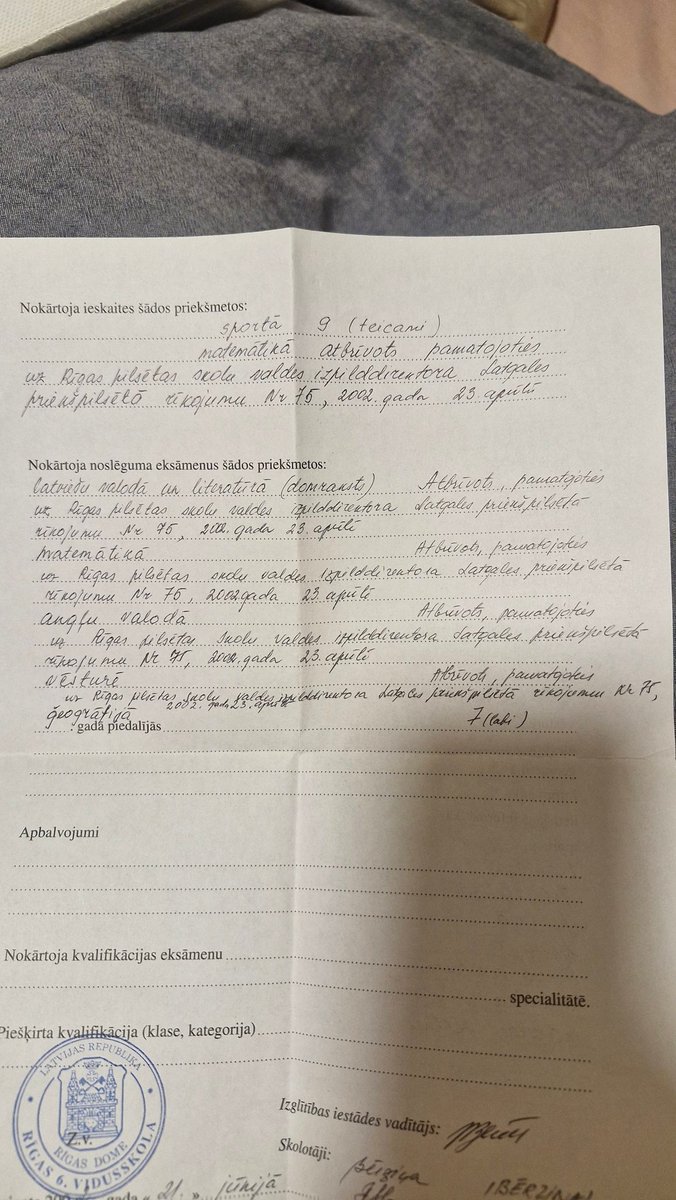 Nokārtoja ieskaites šādos priekšmetos:
sportā 9 (teicami)
matemātikā atbrīvots pamatojoties
uz Rīgas pilsētas skolu valdes izpilddirektora Latgales
priekšpilsētā rīkojumu Nr 75, 2002. gada 23. aprīlī
Nokārtoja noslēguma eksāmenus šādos priekšmetos:
latviešu valodā un literatūrā (domraksts) Atbrīvots, pamatojoties
uz Rīgas pilsētas skolu valdes izpilddirektora Latgales priekšpilsētā
rīkojumu Nr 75, 2002. gada 23. aprīlī
matemātikā Atbrīvots, pamatojoties
uz Rīgas pilsētas skolu valdes izpilddirektora Latgales priekšpilsētā
rīkojumu Nr 75, 2002 gada 23 aprīlī
angļu valodā Atbrīvots, pamatojoties
uz Rīgas pilsētas skolu valdes izpilddirektora Latgales priekšpilsētā
rīkojumu Nr 75, 2002. gada 23. aprīlī
vēsturē Atbrīvots, pamatojoties
uz Rīgas pilsētas skolu valdes izpilddirektora Latgales priekšpilsētā rīkojumu Nr 75,
2002. gada 23. aprīlī
ģeogrāfijā 7 (labi)
. gadā piedalījās
Apbalvojumi
Nokārtoja kvalifikācijas eksāmenu
specialitātē.
Piešķirta kvalifikācija (klase, kategorija)
LATVIJAS REPUBLIKA
RĪGAS DOME
RĪGAS 6. VIDUSSKOLA
Z.v.
Izglītības iestādes vadītājs:
Skolotāji:
Bērziņa
200 gada « 21. » jūnijā I BĒRZIŅA